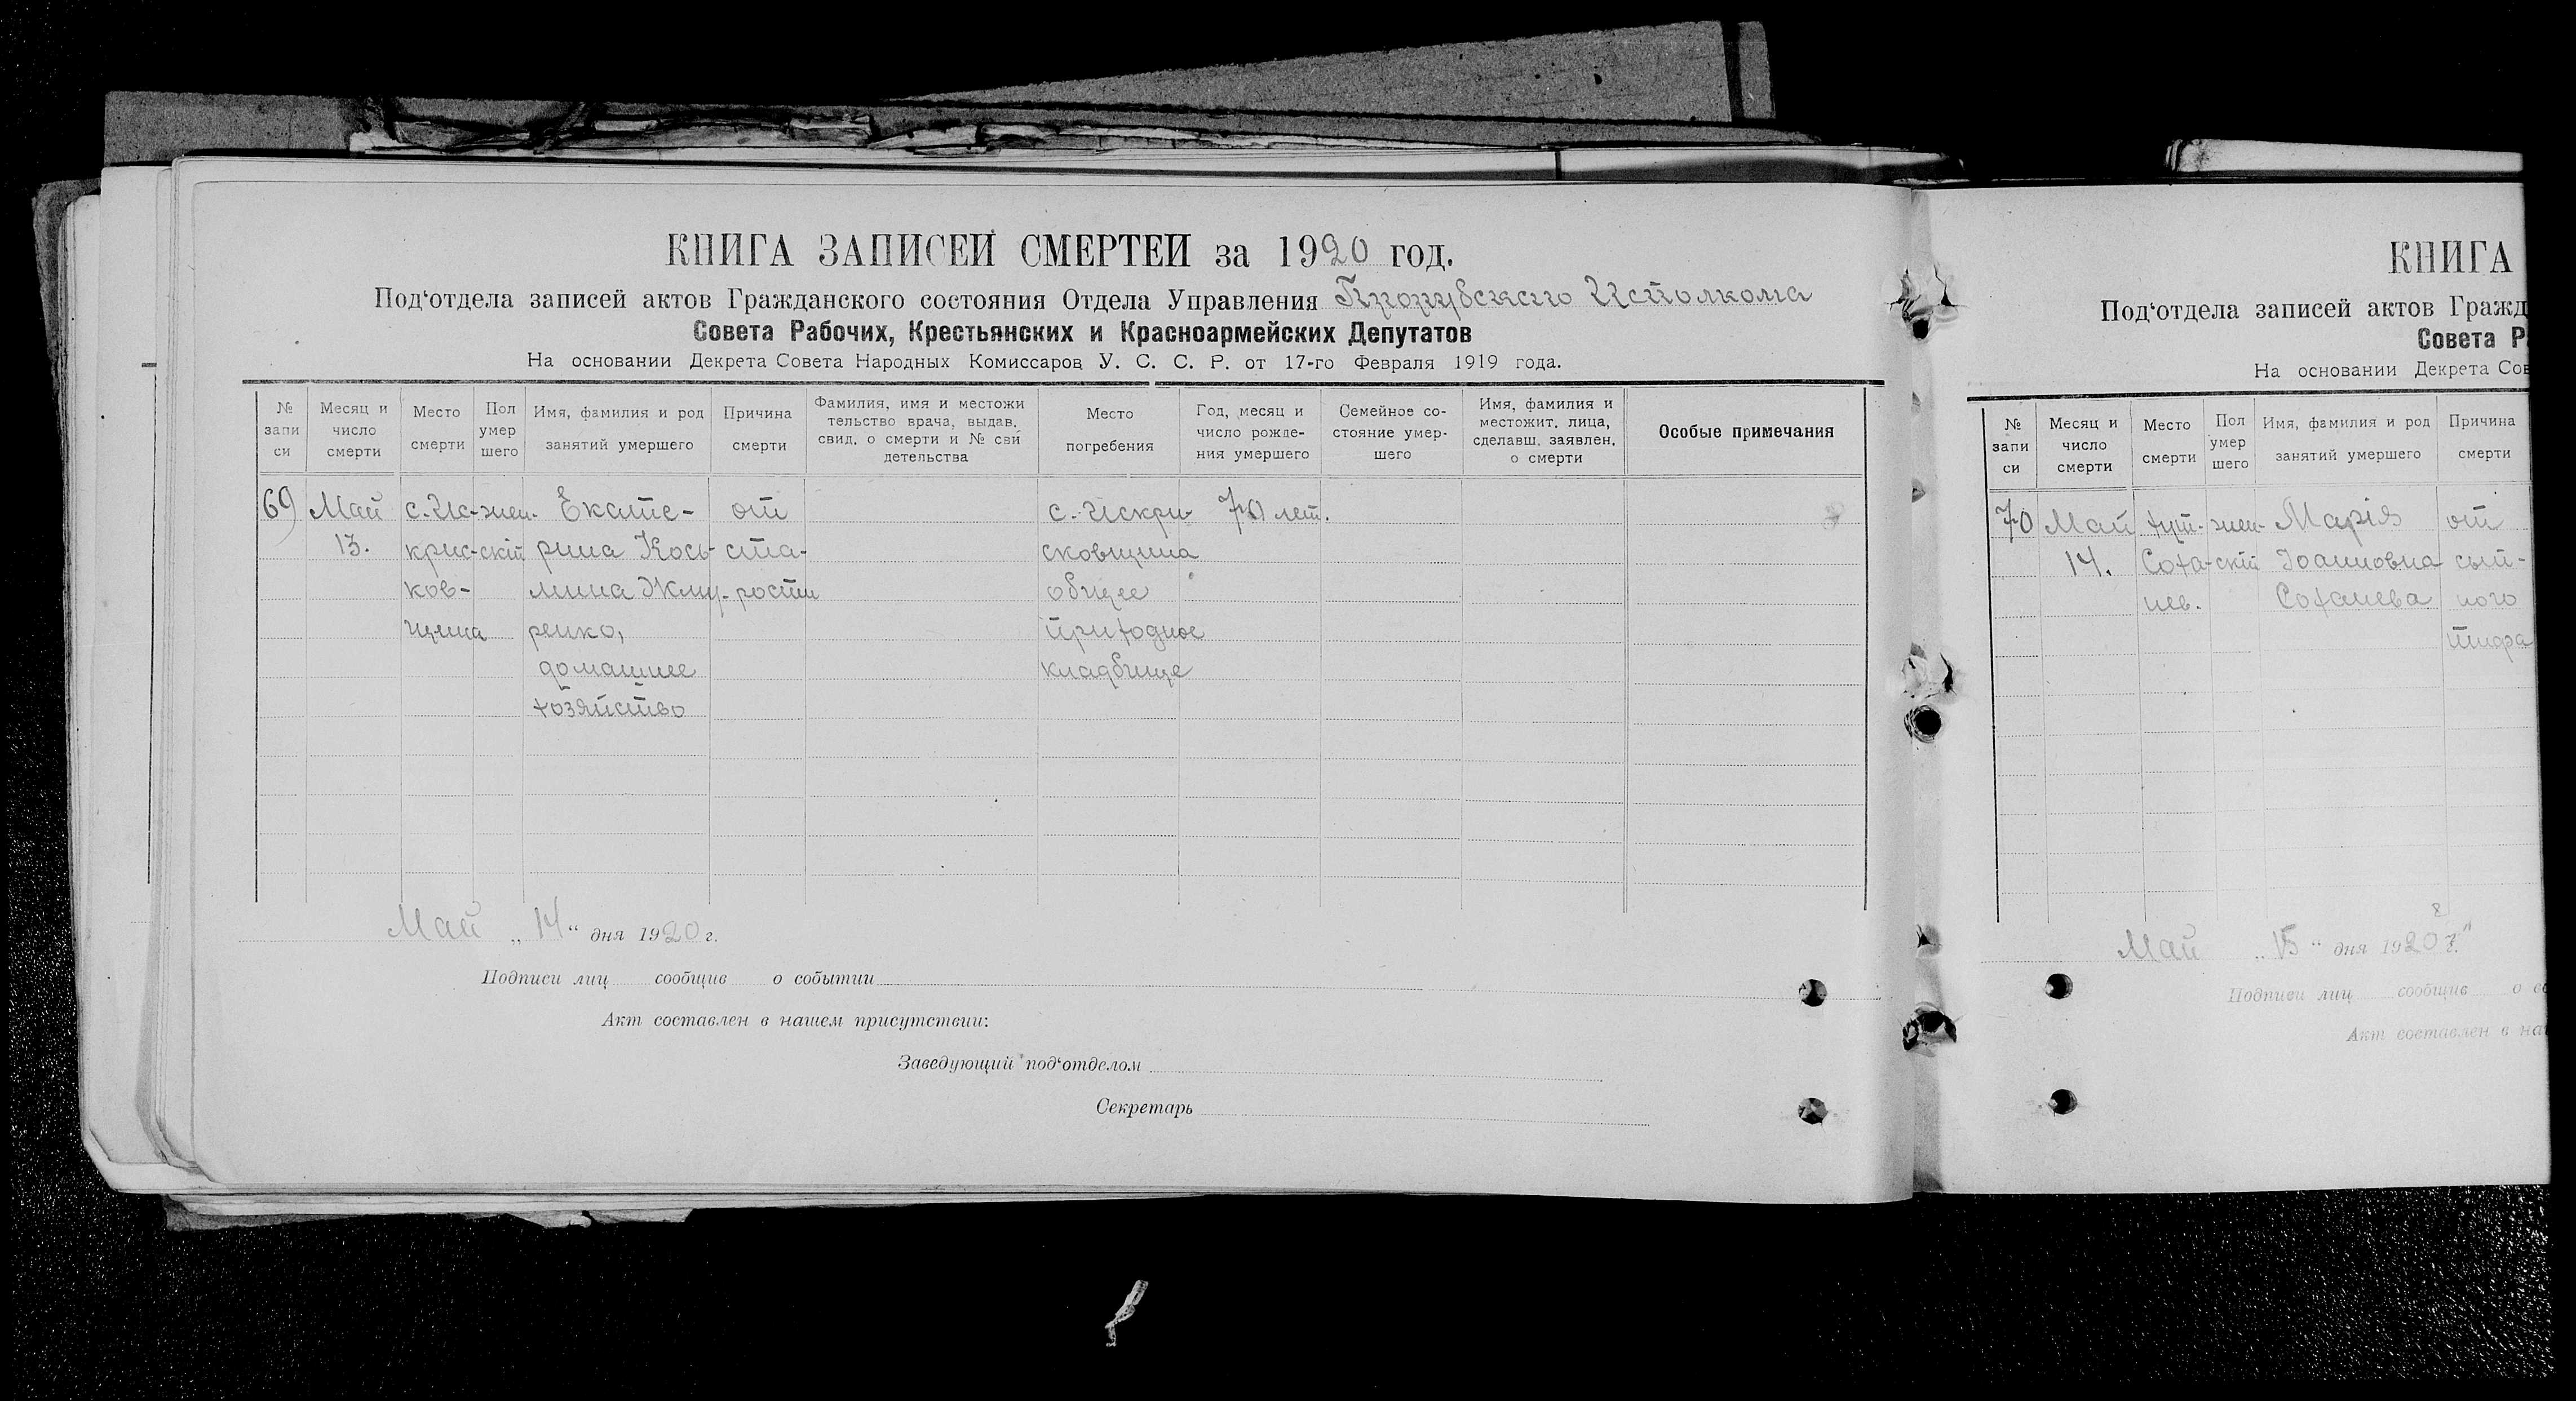 КНИГА ЗАПИСЕЙ СМЕРТЕЙ за 1920 год.
Под‘отдела записей актов Гражданского состояния Отдела Управления Исполкома
Совета Рабочих, Крестьянских и Красноармейских Депутатов
На основании Декрета Совета Народных Комиссаров У. С. С. Р. от 17-го Февраля 1919 года.
№ запи си
Месяц и число смерти
Место смерти
Пол умер шего
Имя, фамилия и род занятий умершего
Причина смерти
Фамилия, имя и местожи тельство врача, выдав. свид. о смерти и № сви детельства
Место погребения
Год, месяц и число рожде- ния умершего
Семейное со- стояние умер- шего
Имя, фамилия и местожит. лица, сделавш. заявлен. о смерти
Особые примечания
69 Май с. Ис- жен- Екате- от с. Искри- 70 лет.
13. крис- скій рина Кось- ста- сковщина
ков- мина Жму- рости общее
щина ренко, приходное
домашнее кладбище
хозяйство
Май „ 14 “ дня 1920 г.
Подписи лиц сообщив о событии
Акт составлен в нашем присутствии:
Заведующий под‘отделом
Секретарь
КНИГА
Под‘отдела записей актов Гражд
Совета Р
На основании Декрета Сов
№ запи си
Месяц и число смерти
Место смерти
Пол умер шего
Имя, фамилия и род занятий умершего
Причина смерти
70 Май хут- жен- Марія от
14. Соха- скій Іоанновна сып-
нев. Соханева ного
тифа
Май „ 15 “ дня 1920 г.
Подписи лиц сообщив о со
Акт составлен в на